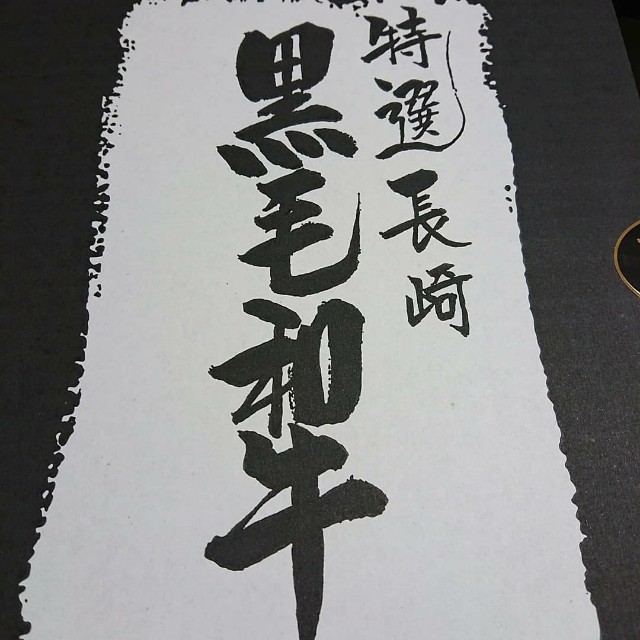 特選長崎
黒毛和牛